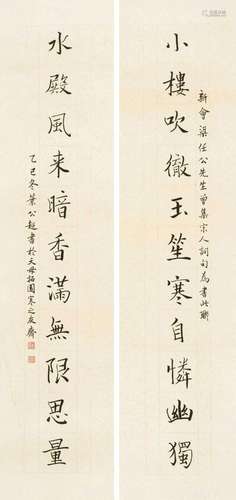 新會梁任公先生曾集宋人詞句為書此聯
小樓吹徹玉笙寒自憐幽獨
水殿風来暗香滿無限思量
乙巳冬葉公超書於天母梅園寒之友齋